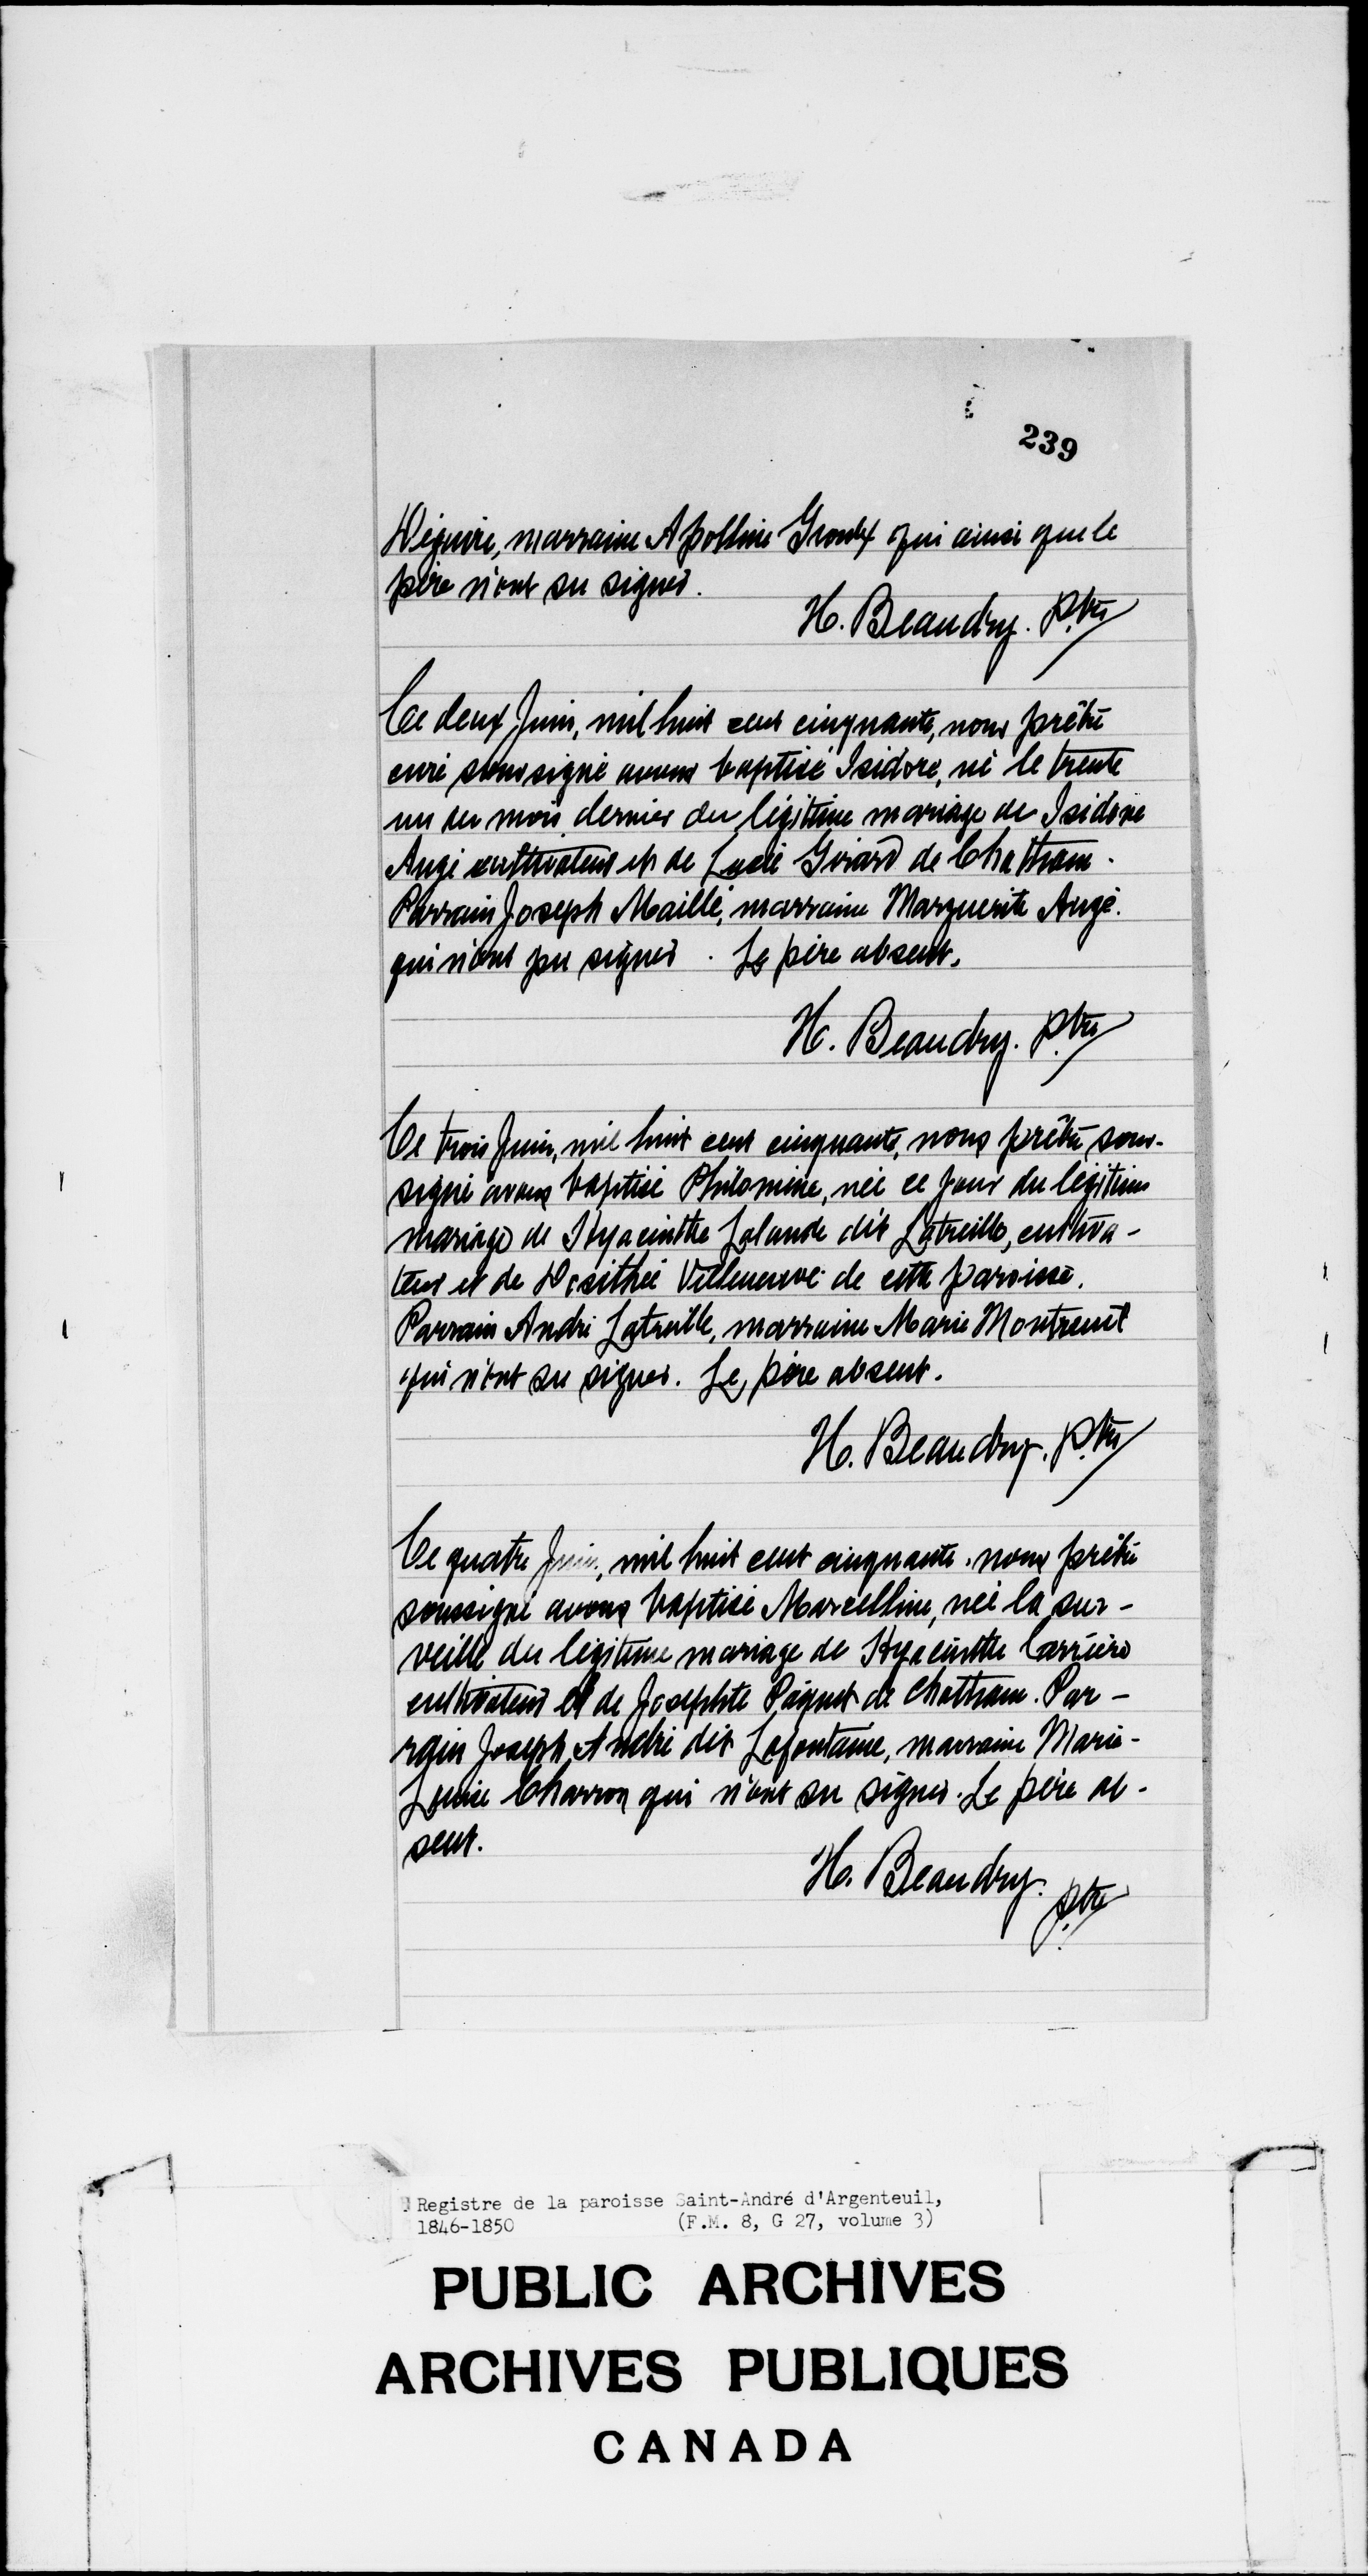 239
Déguire, marraine Apolline Groulx qui ainsi que le
père n'ont su signer.
H. Beaudry. Ptre
Ce deux Juin, mil huit cent cinquante, nous prêtre
curé soussigné avons baptisé Isidore, né le trente
un du mois dernier du légitime mariage de Isidore
Augé cultivateur et de Lucie Girard de Chatham.
Parrain Joseph Maillé, marraine Marguerite Augé.
qui n'ont pu signer. Le père absent.
H. Beaudry. Ptre
Ce trois Juin, mil huit cent cinquante, nous prêtre sous-
signé avons baptisé Philomène, née ce jour du légitime
mariage de Hyacinthe Lalande dit Latreille, cultiva-
teur et de Dosithée Villeneuve de cette paroisse.
Parrain André Latreille, marraine Marie Montreuil
qui n'ont su signer. Le père absent.
H. Beaudry. Ptre
Ce quatre Juin, mil huit cent cinquante, nous prêtre
soussigné avons baptisé Marcelline, née la sur-
veille du légitime mariage de Hyacinthe Carrière
cultivateur et de Josephte Paquet de Chatham. Par-
rain Joseph André dit Lafontaine, marraine Marie-
Louise Charron qui n'ont su signer. Le père ab-
sent.
H. Beaudry. ptre
Registre de la paroisse Saint-André d'Argenteuil,
1846-1850 (F.M. 8, G 27, volume 3)
PUBLIC ARCHIVES
ARCHIVES PUBLIQUES
CANADA